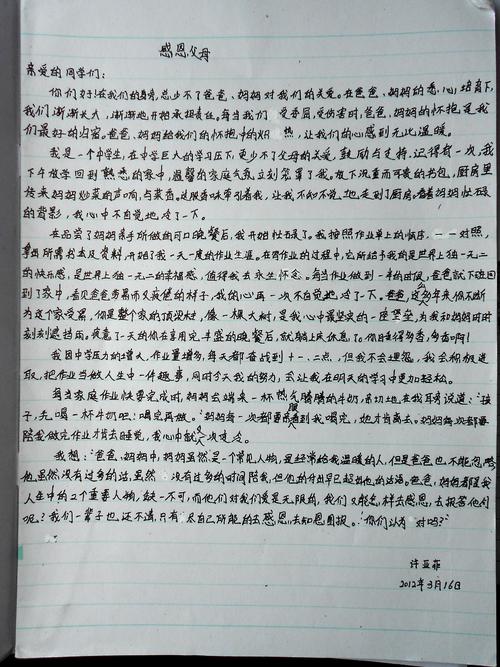 感恩父母
亲爱的同学们：
你们好！在我们的身旁，总少不了爸爸、妈妈对我们的关爱。在爸爸、妈妈的悉心培育下，
我们渐渐长大，渐渐地开始承担责任。每当我们受委屈，受伤害时，爸爸、妈妈的怀抱是我
们最好的归宿。爸爸、妈妈给我们的怀抱中的炽热，让我们的心感到无比温暖。
我是一个中学生，在中学巨大的学习压力下，更少不了父母的关爱、鼓励与支持。记得有一次，我
下午放学回到熟悉的家中，温馨的家庭气氛立刻笼罩了我。放下沉重而可贵的书包，厨房里
传来妈妈炒菜的声响，与菜香。这股香味牵引着我，让我不知不觉地走到了厨房。看着妈妈忙碌
的背影，我心中不自觉地冷了一下。
在品尝了妈妈亲手所做的可口晚餐后，我开始忙碌了。我按照作业单上的顺序，一一对照，
拿出所需书本及资料，开始了我一天一度的作业生涯。在写作业的过程中，它所给予我的是世界上独一无二
的快乐感，是世界上独一无二的幸福感，值得我去永生怀念。每当作业做到一半的时候，爸爸就下班回
到了家中，看见爸爸劳累而又疲惫的样子，我的心再一次不自觉地冷了下。爸爸，这么多年来你不断
为这个家受累，你是整个家的顶梁柱，像一棵大树，是我心中最坚实的一座堡垒，为我和妈妈时时
刻刻遮挡雨，疲惫了一天的你在享用完丰盛的晚餐后，就躺上床休息了。你睡得多香，多甜啊！
我因中学压力的增大，作业量增多，每天都奋战到十一、二点，但我不会埋怨，我会积极进
取，把作业当做人生中一件趣事，同时今天我的努力，会让我在明天的学习中更加轻松。
每当家庭作业快要完成时，妈妈会端来一杯热气腾腾的牛奶，亲切地在我耳旁说道：“孩
子，先喝一杯牛奶吧！喝完再做。”妈妈每一次都要看到我喝完，她才肯离去。妈妈每一次都要
陪我做完作业才肯去睡觉，我心中就又一次冷冷。
我想：“爸爸、妈妈中，妈妈虽然是一个常见人物，是经常给我温暖的人，但是爸爸也不能忽略，
他虽然没有过多的话，虽然没有过多的时间陪我，但他的付出早已超出他的话语。爸爸，妈妈都是我
人生中的二个重要人物，缺一不可，而他们对我们爱是无限的，我们又能怎样去感恩，去报答他们
呢？我们一辈子也还不清，只有尽自己所能的去感恩，去知恩图报。”你们认为对吗？
许亚菲
2012年3月16日